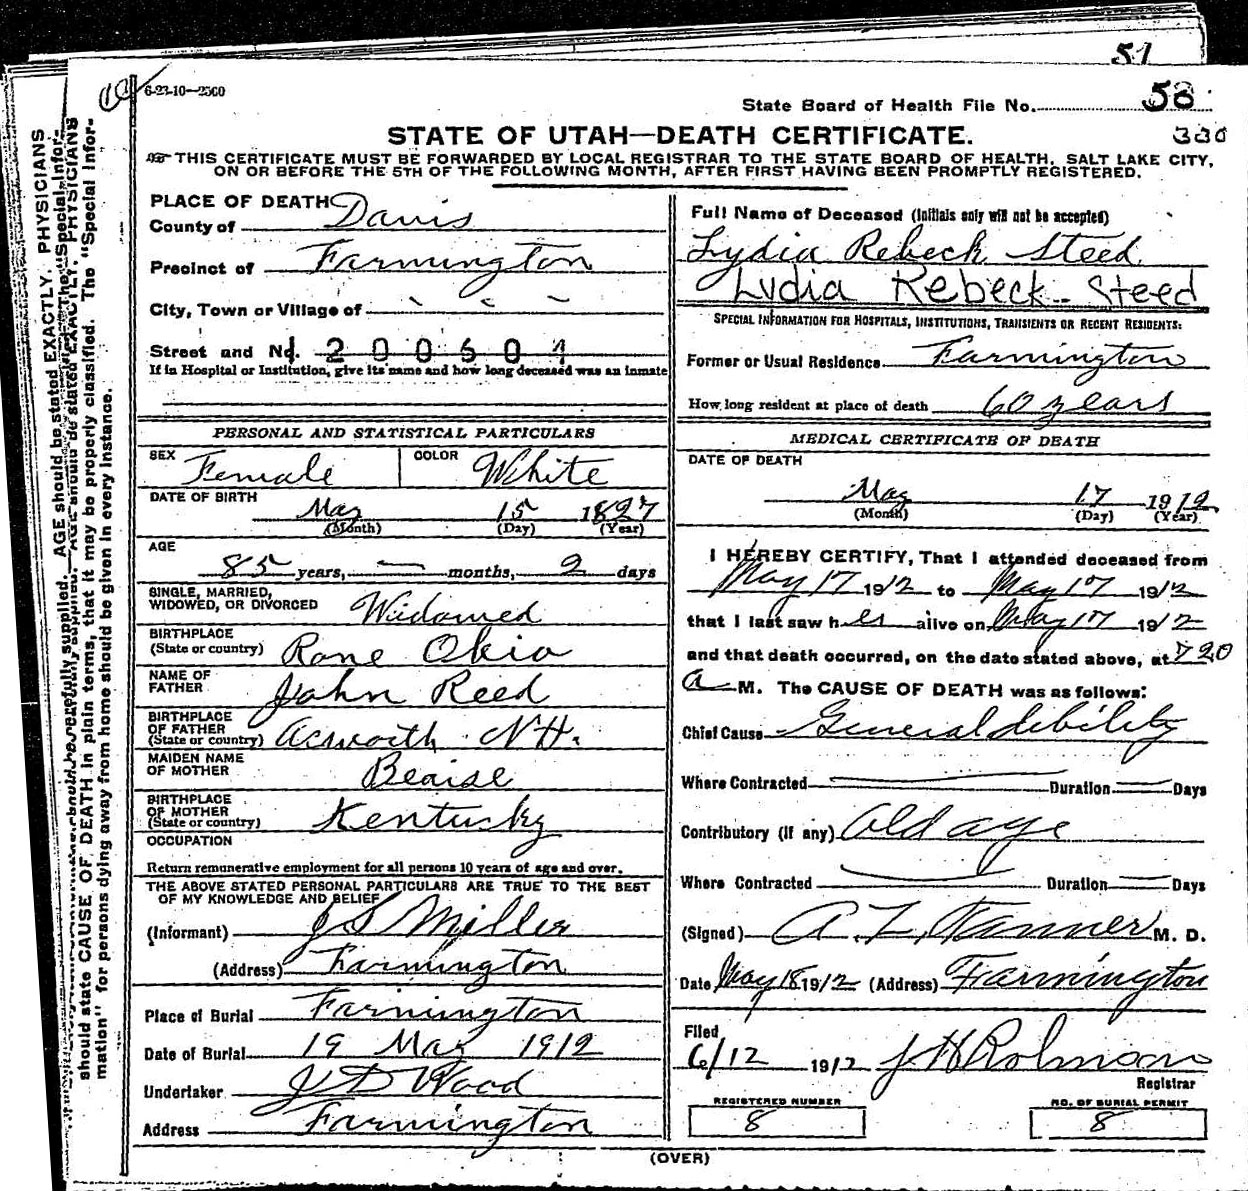 51
6-23-10—2500
State Board of Health File No. 58
330
STATE OF UTAH—DEATH CERTIFICATE.
THIS CERTIFICATE MUST BE FORWARDED BY LOCAL REGISTRAR TO THE STATE BOARD OF HEALTH, SALT LAKE CITY,
ON OR BEFORE THE 5TH OF THE FOLLOWING MONTH, AFTER FIRST HAVING BEEN PROMPTLY REGISTERED.
should state CAUSE OF DEATH in plain terms, that it may be properly classified. The "Special Infor-
mation" for persons dying away from home should be given in every instance.
PLACE OF DEATH
County of Davis
Precinct of Farmington
City, Town or Village of
Street and No. 1200601
If in Hospital or Institution, give its name and how long deceased was an inmate
PERSONAL AND STATISTICAL PARTICULARS
SEX Female COLOR White
DATE OF BIRTH
May 15 1827
(Month) (Day) (Year)
AGE
85 years, — months, 2 days
SINGLE, MARRIED,
WIDOWED, OR DIVORCED Widowed
BIRTHPLACE
(State or country) Rone Ohio
NAME OF
FATHER John Reed
BIRTHPLACE
OF FATHER
(State or country) Acworth N.H.
MAIDEN NAME
OF MOTHER Bearse
BIRTHPLACE
OF MOTHER
(State or country) Kentucky
OCCUPATION
Return remunerative employment for all persons 10 years of age and over.
THE ABOVE STATED PERSONAL PARTICULARS ARE TRUE TO THE BEST
OF MY KNOWLEDGE AND BELIEF
(Informant) J S Miller
(Address) Farmington
Place of Burial Farmington
Date of Burial 19 May 1912
Undertaker J D Wood
Address Farmington
Full Name of Deceased (Initials only will not be accepted)
Lydia Rebeck Steed
Lydia Rebeck Steed
SPECIAL INFORMATION FOR HOSPITALS, INSTITUTIONS, TRANSIENTS OR RECENT RESIDENTS:
Former or Usual Residence Farmington
How long resident at place of death 60 years
MEDICAL CERTIFICATE OF DEATH
DATE OF DEATH
May 17 1912
(Month) (Day) (Year)
I HEREBY CERTIFY, That I attended deceased from
May 17 1912 to May 17 1912
that I last saw her alive on May 17 1912
and that death occurred, on the date stated above, at 7 20
a M. The CAUSE OF DEATH was as follows:
Chief Cause General debility
Where Contracted Duration Days
Contributory (if any) Old age
Where Contracted Duration Days
(Signed) A. Z. Tanner M. D.
Date May 18 1912 (Address) Farmington
Filed
6/12 1912 J H Robinson
Registrar
REGISTERED NUMBER
8
NO. OF BURIAL PERMIT
8
(OVER)